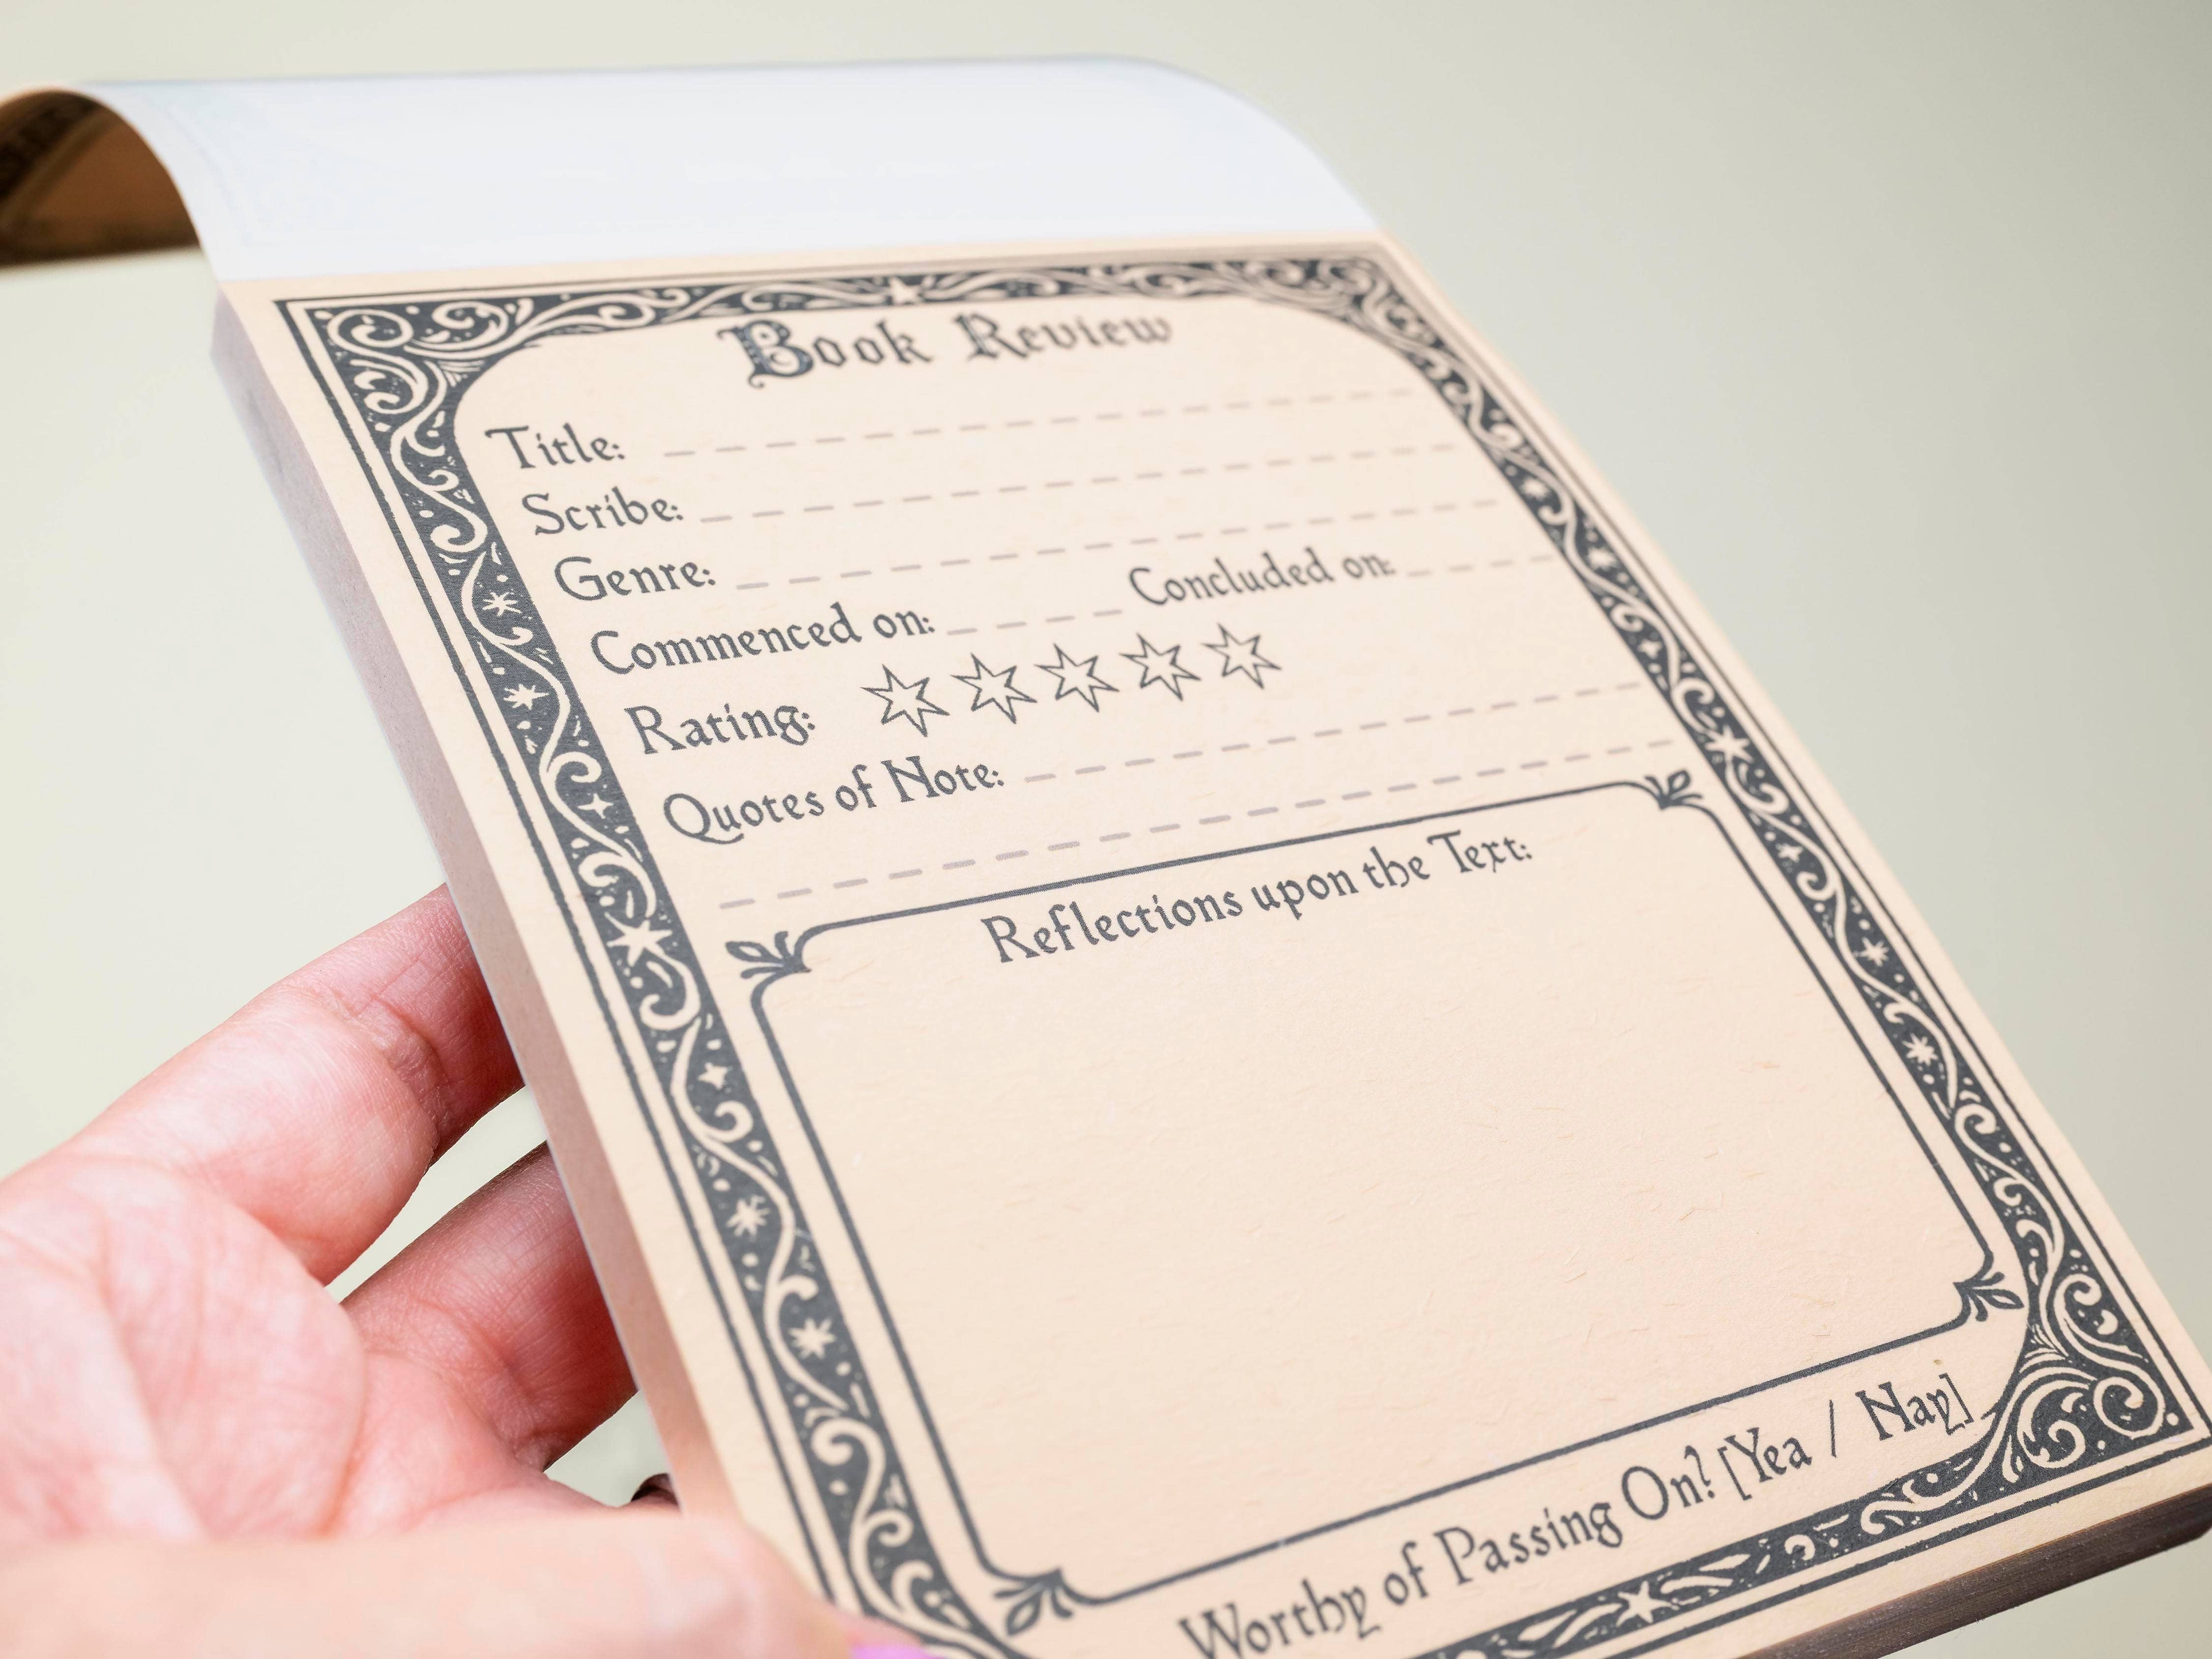 Book Review
Title:
Scribe:
Genre:
Commenced on: Concluded on:
Rating:
Quotes of Note:
Reflections upon the Text:
Worthy of Passing On? [Yea / Nay]